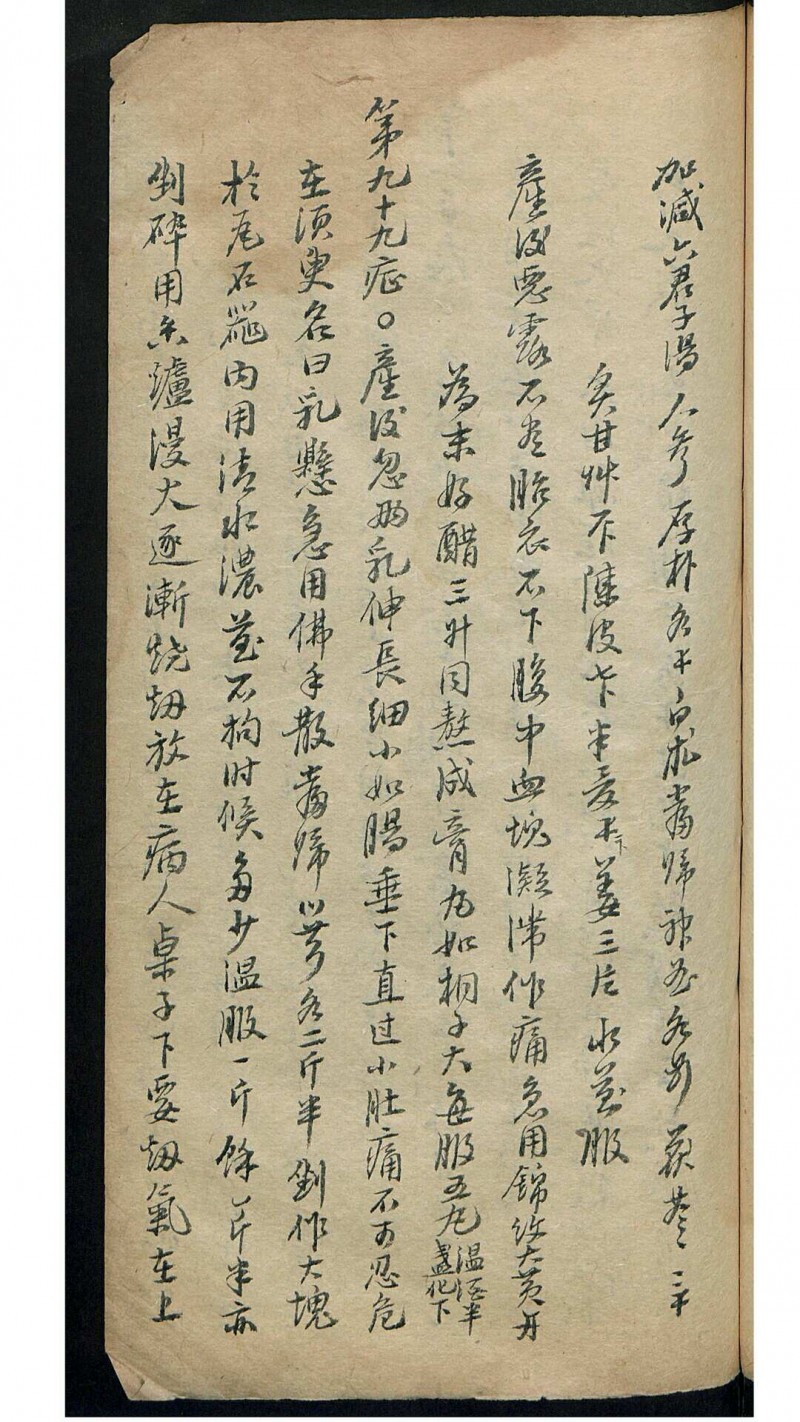 加減六君子湯 人参 厚朴各 白朮 當歸 神 各 茯苓 三
炙甘艸 陳皮 半 姜三片 水 服
產後惡露不尽胎衣不下腹中血塊凝滞作痛急用錦紋大黃
為末好醋三升同熬成膏丸如桐子大每服五丸温酒半盞化下
第九十九症○產後忽两乳伸長細小如腸垂下直过小肚痛不可忍危
在須臾名曰乳懸急用佛手散當歸川芎各二斤半剉作大塊
於瓦石器内用清水濃 不拘时候多少温服一斤餘一斤半亦
剉碎用香爐漫火逐漸烧烟放在病人桌子下要烟氣在上